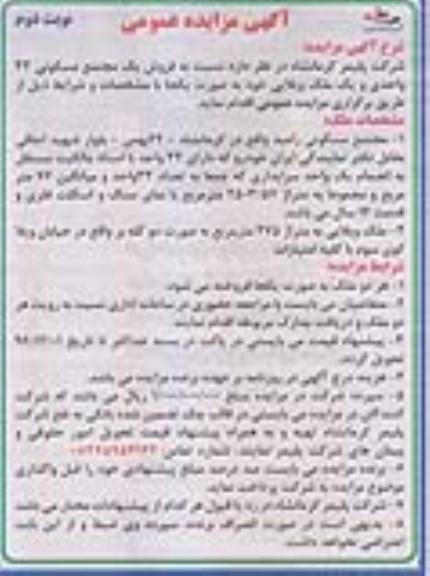 آگهی مزایده عمومی
نوبت دوم
شرح آگهی مزایده:
شرکت پلیمر کرمانشاه در نظر دارد نسبت به فروش یک مجتمع مسکونی ۲۲
واحدی و یک ملک ویلایی خود به صورت یکجا با مشخصات و شرایط ذیل از
طریق برگزاری مزایده عمومی اقدام نماید.
مشخصات ملک:
۱- مجتمع مسکونی واقع در کرمانشاه - ۲۲بهمن - بلوار شهید
مقابل دفتر نمایندگی ایران خودرو که دارای ۲۲ واحد با اسناد مالکیت مستقل
به انضمام یک واحد سرایداری که جمعا به تعداد واحد و میانگین متر
مربع و مجموعا به متراژ مترمربع با نمای سنگ و اسکلت فلزی و
قدمت سال می باشد.
۲- ملک ویلایی به متراژ ۳۷۵ مترمربع به صورت دو کله بر واقع در خیابان
کوی سوم با کلیه امتیازات
شرایط مزایده:
۱- هر دو ملک به صورت یکجا فروخته می شود.
۲- متقاضیان می بایست با مراجعه حضوری در ساعات اداری نسبت به رویت هر
دو ملک و دریافت مدارک مربوطه اقدام نمایند.
۳- پیشنهاد قیمت می بایستی در پاکت در بسته حداکثر تا تاریخ
تحویل گردد.
۴- هزینه درج آگهی در روزنامه بر عهده برنده مزایده می باشد.
۵- سپرده شرکت در مزایده مبلغ ریال می باشد که شرکت
کنندگان در مزایده می بایستی در قالب چک تضمین شده بانکی به نفع شرکت
پلیمر کرمانشاه تهیه و به همراه پیشنهاد قیمت تحویل امور حقوقی و
پیمان های شرکت پلیمر نمایند. شماره تماس:
۶- برنده مزایده می بایست صد درصد مبلغ پیشنهادی خود را قبل واگذاری
موضوع مزایده به شرکت پرداخت نماید.
۷- شرکت پلیمر کرمانشاه در رد یا قبول هر کدام از پیشنهادات مختار می باشد.
۸- بدیهی است در صورت انصراف برنده، سپرده وی ضبط و از این بابت
اعتراضی نخواهد داشت.